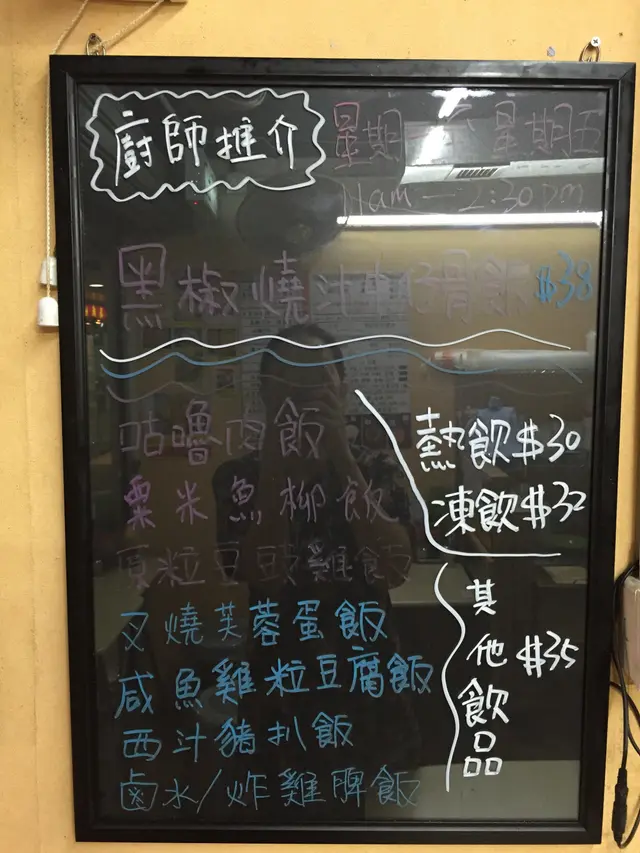 廚師推介
星期一至星期五
11am - 2:30pm
黑椒燒汁牛仔骨飯 $38
咕嚕肉飯
粟米魚柳飯
原粒豆豉雞飯
叉燒芙蓉蛋飯
咸魚雞粒豆腐飯
西汁豬扒飯
鹵水/炸雞髀飯
熱飲 $30
凍飲 $32
其他飲品 $35